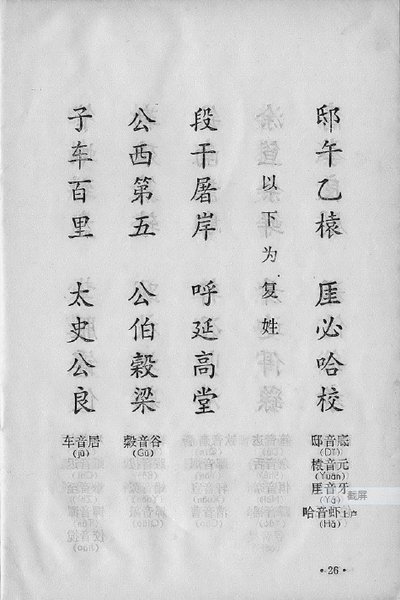 邸午乙榬 厓必哈校
以下为复姓
段干屠岸 呼延高堂
公西第五 公伯穀梁
子车百里 太史公良
邸音底
(Dǐ)
榬音元
(Yuán)
厓音牙
(Yá)
哈音虾上声
(Hǎ)
穀音谷
(Gǔ)
车音居
(jū)
截屏
·26·